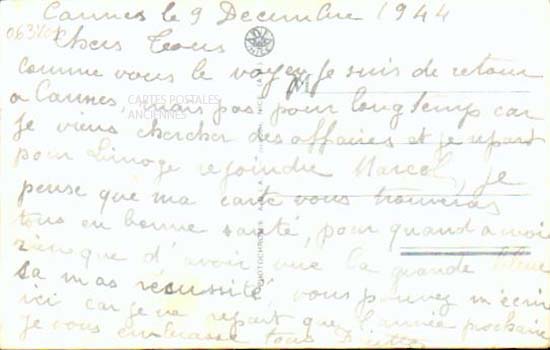 Cannes le 9 Decembre 1944
Chers Tous
comme vous le voyez, je suis de retour
a Cannes, mais pas pour longtemp car
CARTES POSTALES
ANCIENNES
je viens chercher des affaires et je repart
pour Limoge rejoindre Marcel, je
pense que ma carte vous trouveras
tous en bonne santé, pour quand a moi
rien que d'avoir vue la grande
sa m'as récussité, vous pouvez m'écrire
ici car je ne repart que l'année prochaine
je vous embrasse tous